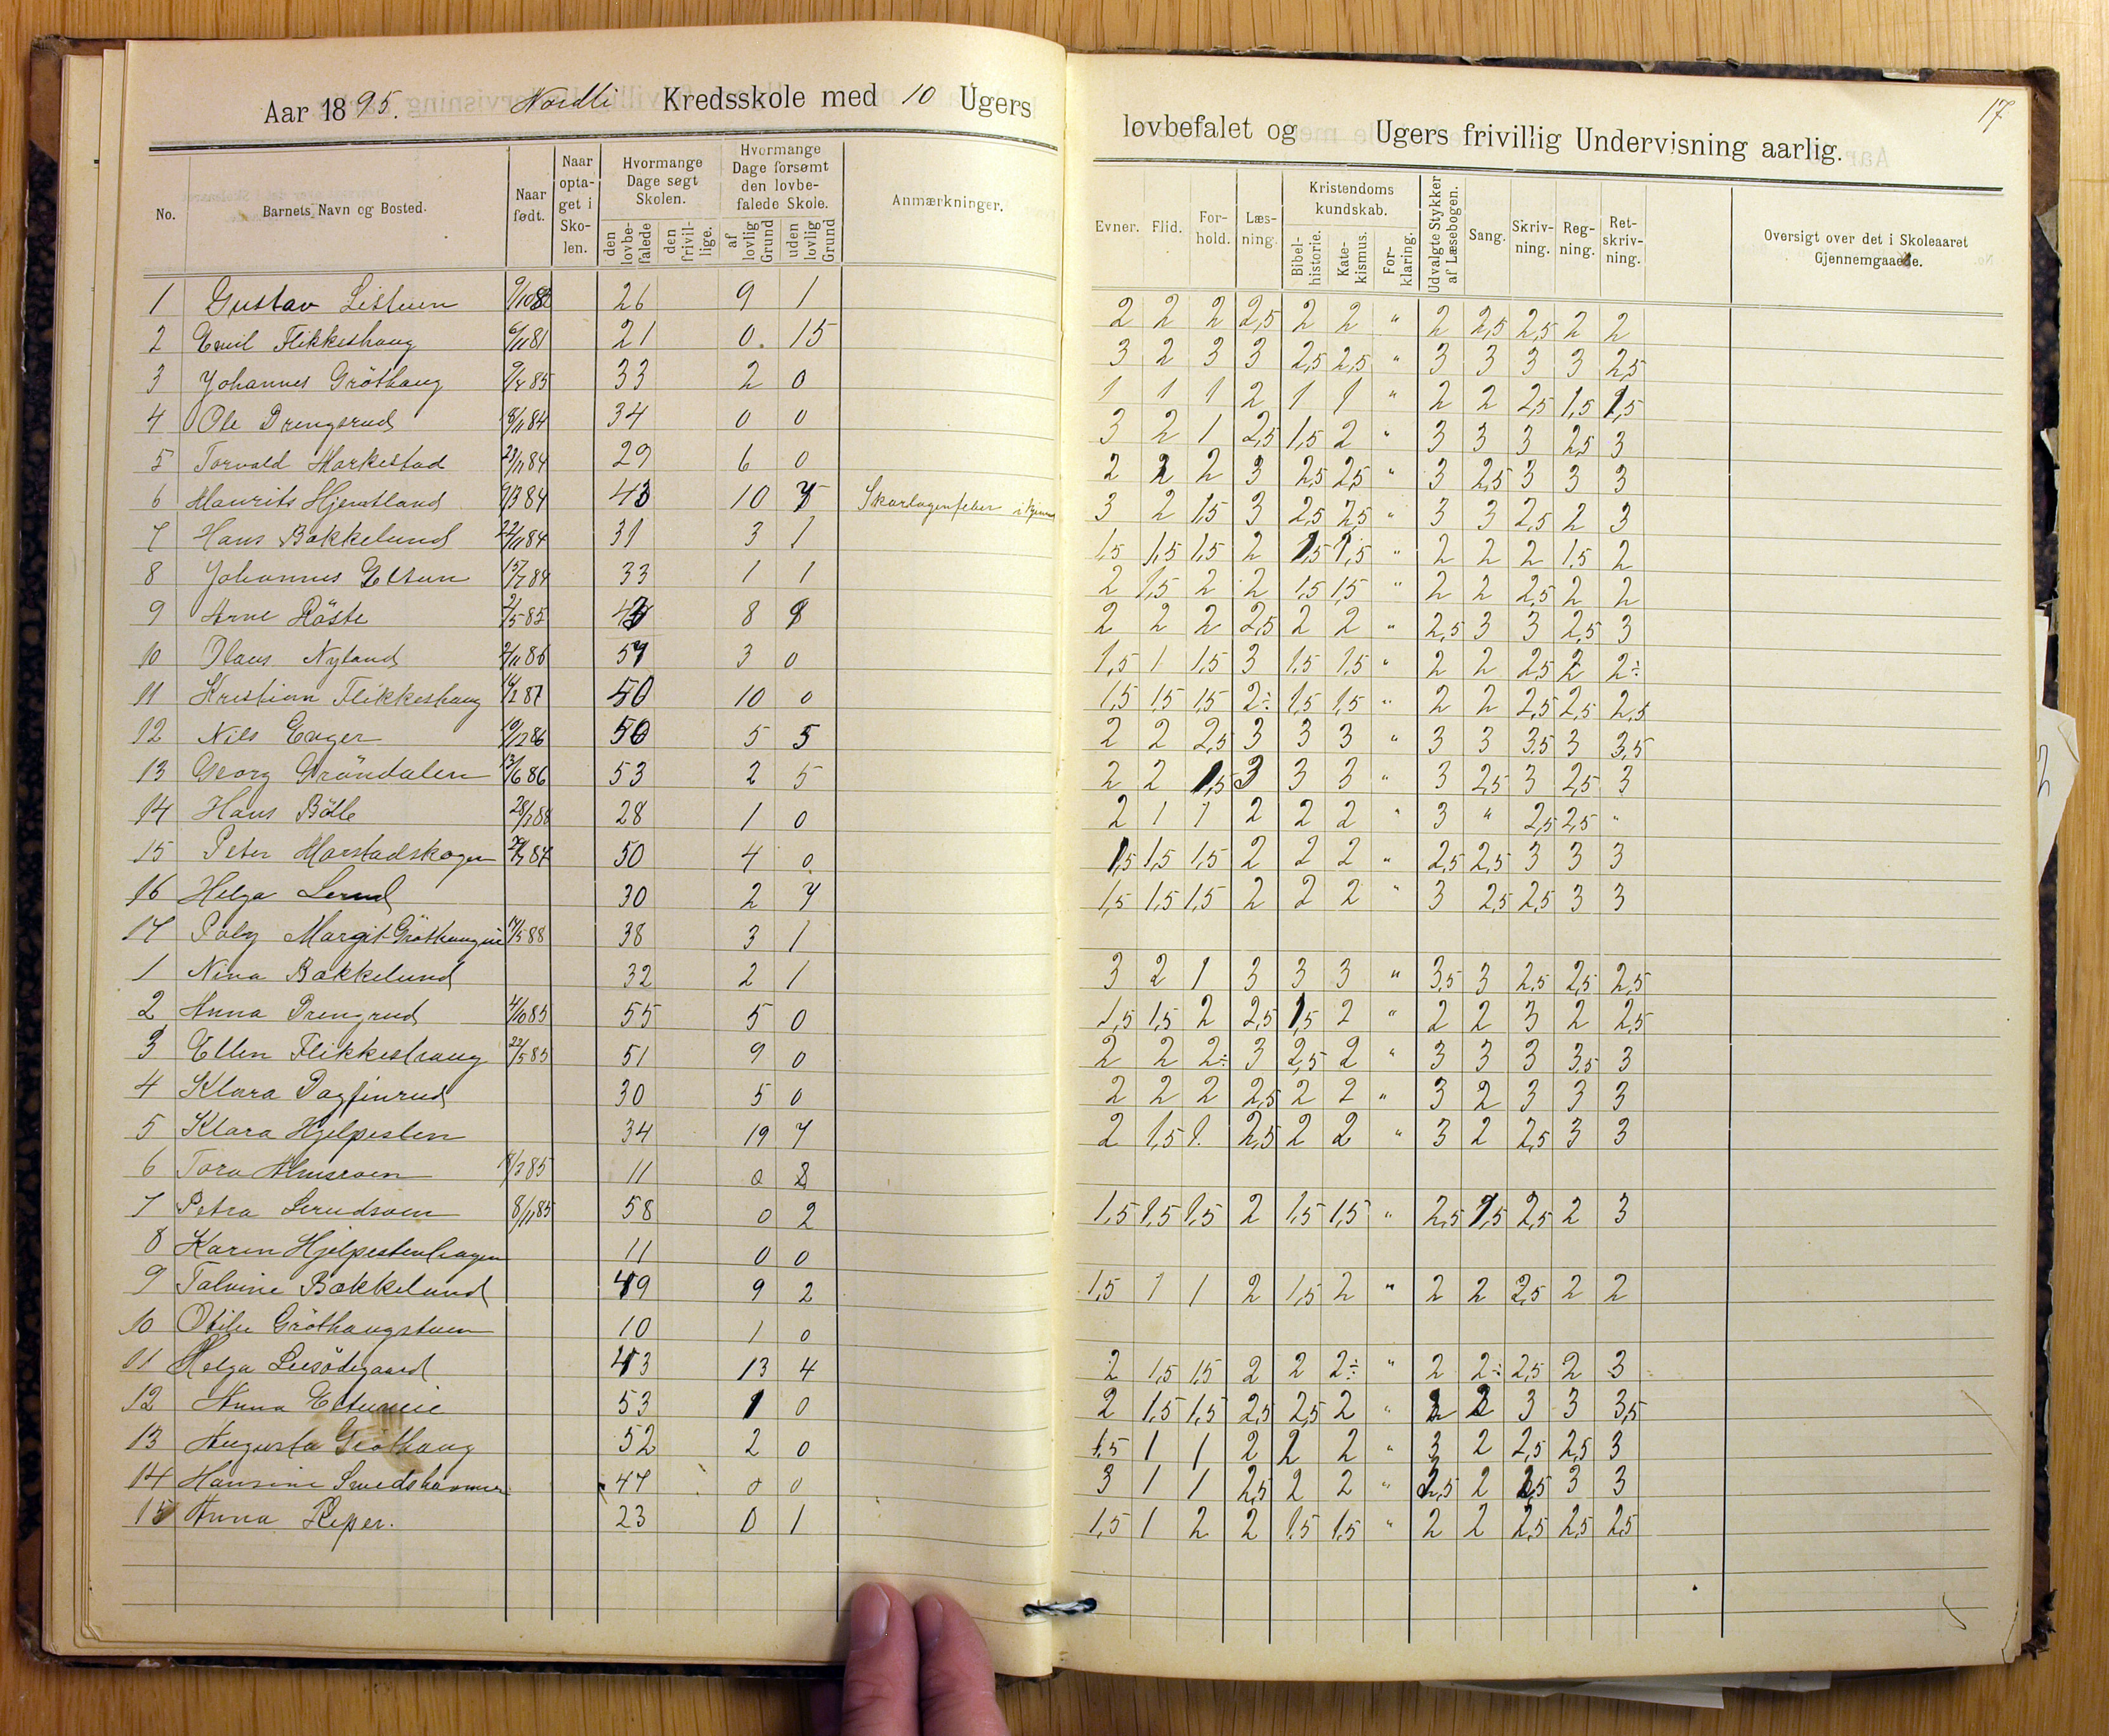 Aar 1895. Nordli Kredsskole med 10 Ugers
No. Barnets Navn og Bosted. Naar født. Naar optaget i Skolen. Hvormange Dage søgt Skolen. den lovbefalede den frivillige. Hvormange Dage forsømt den lovbefalede Skole. af lovlig Grund uden lovlig Grund Anmærkninger.
1 Gustav Listuen 26 9 1
2 Emil Flikkeshaug 6/11 81 21 0. 15
3 Johannes Gröthaug 9/4 85 33 2 0
4 Ole Drengsrud 8/11 84 34 0 0
5 Torvald Markestad 29/11 84 29 6 0
6 Maurits Hjemstland 43 10 Skarlagensfeber i
7 Hans Bakkelund 22/11 84 31 3 1
8 Johannes Eltun 15/7 84 33 1 1
9 Arne Röste 8
10 Olaus Nyland 2/11 86 3 0
11 Kristian Flikkeshaug 50 10 0
12 Nils Enger 50 5 5
13 Georg Gröndalen 13/6 86 53 2 5
14 Hans Bölle 28 1 0
15 Peter Marstadskogen 50 4 0
16 Helga Lerud 30 2 7
17 Paly Margit Gröthaugeie 17/5 88 38 3 1
1 Nina Bakkelund 32 2 1
2 Anna Drengrud 4/10 85 55 5 0
3 Ellen Flikkeshaug 22/5 85 51 9 0
4 Klara Dagfinrud 30 5 0
5 Klara Hjelpesten 34 19 7
6 Tora 11 0 8
7 Petra Lerudsven 8/11 85 58 0 2
8 Karen Hjelpestenhagen 11 0 0
9 Talvine Bakkelund 49 9 2
10 Otilie Gröthaugstuen 10 1 0
11 Helga Liesödegaard 43 13 4
12 Anna Eltuneie 53 1 0
13 Augusta Gröthaug 52 2 0
14 Hansine Smedshammer 47 0 0
15 Anna Reper. 23 0 1
17
lovbefalet og Ugers frivillig Undervisning aarlig.
Evner. Flid. Forhold. Læsning. Kristendomskundskab. Bibelhistorie. Katekismus. Forklaring. Udvalgte Stykker af Læsebogen. Sang. Skrivning. Regning. Retskrivning. Oversigt over det i Skoleaaret Gjennemgaaede.
2 2 2 2,5 2 2 " 2 2,5 2,5 2 2
3 2 3 3 2,5 2,5 " 3 3 3 3 2,5
1 1 1 2 1 1 " 2 2 2,5 1,5 1,5
3 2 1 2,5 1,5 2 " 3 3 3 2,5 3
2 2 2 3 2,5 2,5 " 3 2,5 3 3 3
3 2 1,5 3 2,5 2,5 " 3 3 2,5 2 3
1,5 1,5 1,5 2 1,5 1,5 " 2 2 2 1,5 2
2 1,5 2 2 1,5 1,5 " 2 2 2,5 2 2
2 2 2 2,5 2 2 " 2,5 3 3 2,5 3
1,5 1 1,5 3 1,5 1,5 " 2 2 2,5 2 2÷
1,5 1,5 1,5 2÷ 1,5 1,5 " 2 2 2,5 2,5 2,5
2 2 2,5 3 3 3 " 3 3 3,5 3 3,5
2 2 1,5 3 3 3 " 3 2,5 3 2,5 3
2 1 1 2 2 2 " 3 " 2,5 2,5 "
1,5 1,5 1,5 2 2 2 " 2,5 2,5 3 3 3
1,5 1,5 1,5 2 2 2 " 3 2,5 2,5 3 3
3 2 1 3 3 3 " 3,5 3 2,5 2,5 2,5
1,5 1,5 2 2,5 1,5 2 " 2 2 3 2 2,5
2 2 2÷ 3 2,5 2 " 3 3 3 3,5 3
2 2 2 2,5 2 2 " 3 2 3 3 3
2 1,5 1. 2,5 2 2 " 3 2 2,5 3 3
1,5 1,5 1,5 2 1,5 1,5 " 2,5 1,5 2,5 2 3
1,5 1 1 2 1,5 2 " 2 2 2,5 2 2
2 1,5 1,5 2 2 2÷ " 2 2÷ 2,5 2 3
2 1,5 1,5 2,5 2,5 2 " 2 2 3 3 3,5
1,5 1 1 2 2 2 " 3 2 2,5 2,5 3
3 1 1 2,5 2 2 " 2,5 2 2,5 3 3
1,5 1 2 2 1,5 1,5 " 2 2 2,5 2,5 2,5